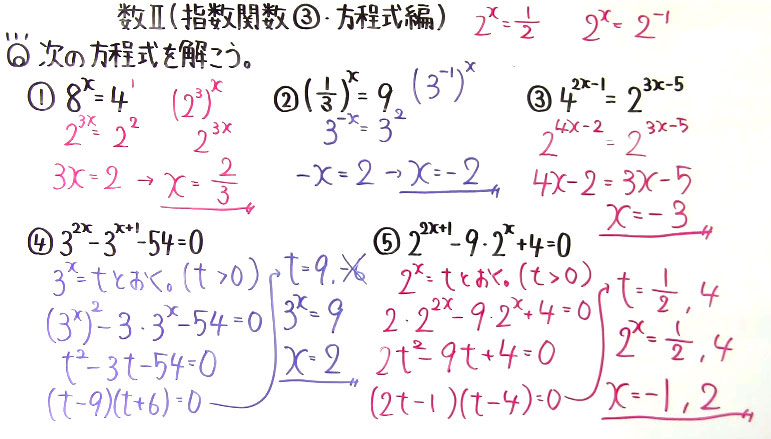 数Ⅱ(指数関数③・方程式編) 2^x=1/2 2^x=2^-1
次の方程式を解こう。
① 8^x=4^1 (2^3)^x
2^3x=2^2 2^3x
3x=2→x=2/3
② (1/3)^x=9 (3^-1)^x
3^-x=3^2
-x=2→x=-2
③ 4^2x-1=2^3x-5
2^4x-2=2^3x-5
4x-2=3x-5
x=-3
④ 3^2x-3^x+1-54=0
3^x=tとおく。(t>0)
(3^x)^2-3・3^x-54=0
t^2-3t-54=0
(t-9)(t+6)=0
t=9,-6
3^x=9
x=2
⑤ 2^2x+1-9・2^x+4=0
2^x=tとおく。(t>0)
2・2^2x-9・2^x+4=0
2t^2-9t+4=0
(2t-1)(t-4)=0
t=1/2,4
2^x=1/2,4
x=-1,2